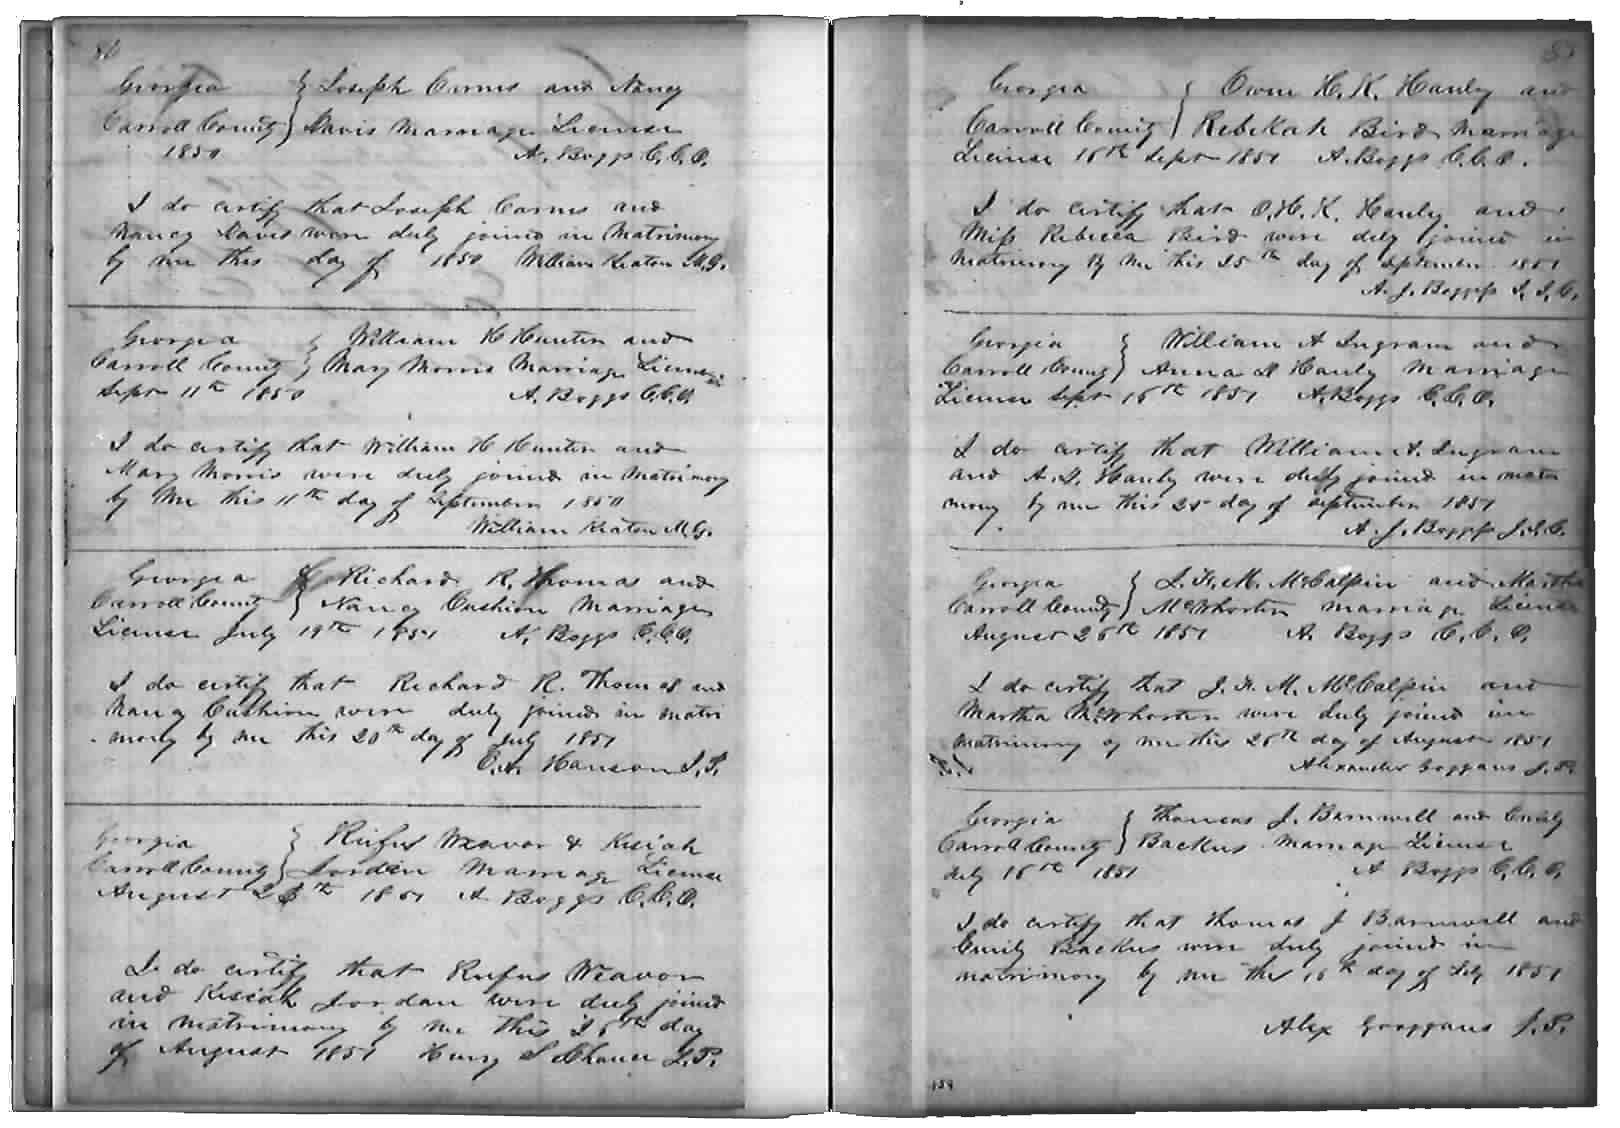 Georgia } Joseph Carnes and Nancy
Carroll County } Davis Marriage License
1850 A. Boggs C.C.O.
I do certify that Joseph Carnes and
Nancy Davis were duly joined in Matrimony
by me this day of 1850 William Keaton M.G.
Georgia } William H Hunter and
Carroll County } Mary Morris Marriage License
Sept 11th 1850 A. Boggs C.C.O.
I do certify that William H Hunter and
Mary Morris were duly joined in Matrimony
by Me this 11th day of September 1850
William Keaton M.G.
Georgia } Richard R. Thomas and
Carroll County } Nancy Cushion Marriage
License July 19th 1851 A. Boggs C.C.O.
I do certify that Richard R. Thomas and
Nancy Cushion were duly joined in matri
mony by me this 20th day of July 1851
Hanson J.P.
Georgia } Rufus Weavor & Kisiah
Carroll County } Jorden Marriage License
August 1851 A Boggs C.C.O.
I do certify that Rufus Weavor
and Kisiah Jordan were duly joined
in matrimony by me this 26th day
of August 1851 Henry S J.P.
Georgia } Owen H. K. Hanly and
Carroll County } Rebekah Bird Marriage
License 16th Sept 1851 A. Boggs C.C.O.
I do certify that O. H. K. Hanly and
Miss Rebecca Bird were duly joined in
matrimony By Me this 25th day of September 1851
A. J. Boggess J. I. C.
Georgia } William A Ingram and
Carroll County } Anna Hanly Marriage
License Sept 16th 1851 A. Boggs C.C.O.
I do certify that William A. Ingram
and Hanly were duly joined in matri
mony by me this 25 day of September 1851
A. J. Boggess J. I. C.
Georgia } M. McCalpin and Martha
Carroll County } McWhorter marriage License
August 26th 1851 A. Boggs C.C.O.
I do certify that M. McCalpin and
Martha McWhorter were duly joined in
matrimony by me this 26th day of August 1851
Alexander Goggans J.P.
Georgia } Thomas J. Barnwell and Emily
Carroll County } Backus Marriage License
July 16th 1851 A Boggs C.C.O.
I do certify that Thomas J Barnwell and
Emily Backus were duly joined in
matrimony by me this 16th day of July 1851
Alex Googgans J.P.
159